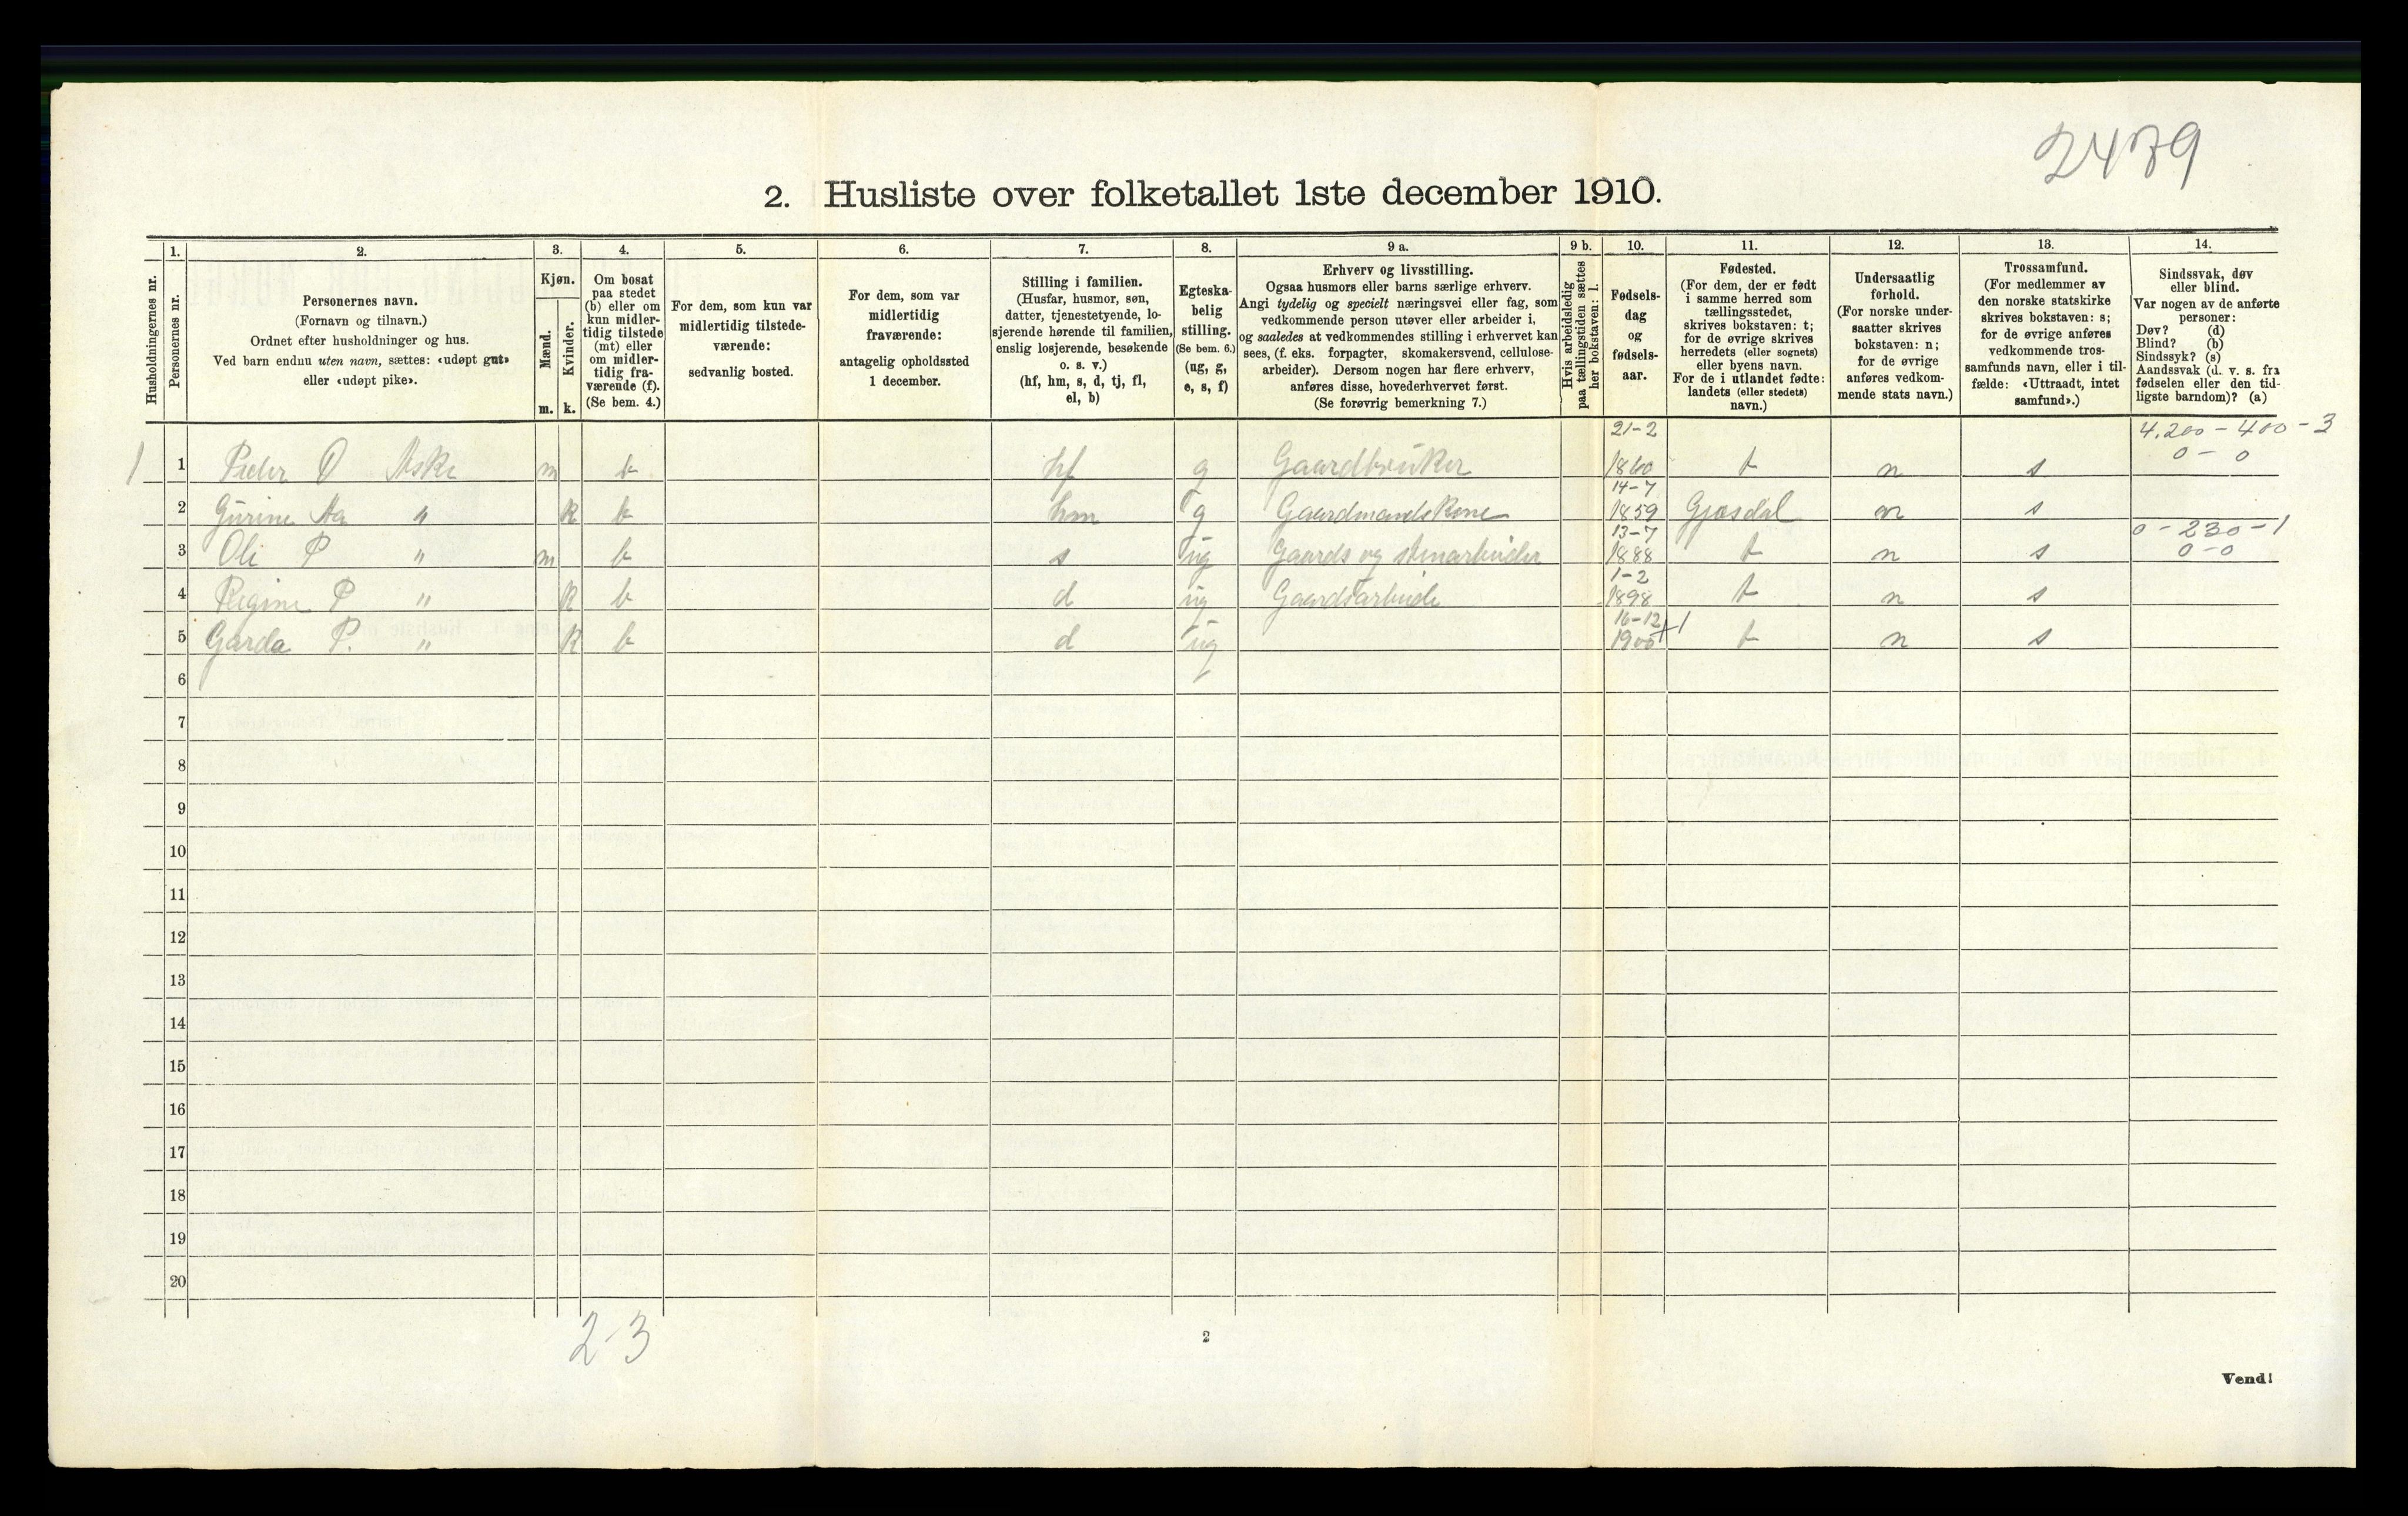 2479
2. Husliste over folketallet 1ste december 1910.
Husholdningernes nr.
1.
Personernes nr.
2.
Personernes navn.
(Fornavn og tilnavn.)
Ordnet efter husholdninger og hus.
Ved barn endnu uten navn, sættes: «udøpt gut»
eller «udøpt pike».
3.
Kjøn.
Mænd.
m.
Kvinder.
k.
4.
Om bosat
paa stedet
(b) eller om
kun midler-
tidig tilstede
(mt) eller
om midler-
tidig fra-
værende (f).
(Se bem. 4.)
5.
For dem, som kun var
midlertidig tilstede-
værende:
sedvanlig bosted.
6.
For dem, som var
midlertidig
fraværende:
antagelig opholdssted
1 december.
7.
Stilling i familien.
(Husfar, husmor, søn,
datter, tjenestetyende, lo-
sjerende hørende til familien,
enslig losjerende, besøkende
o. s. v.)
(hf, hm, s, d, tj, fl,
el, b)
8.
Egteska-
belig
stilling.
(Se bem. 6.)
(ug, g,
e, s, f)
9 a.
Erhverv og livsstilling.
Ogsaa husmors eller barns særlige erhverv.
Angi tydelig og specielt næringsvei eller fag, som
vedkommende person utøver eller arbeider i,
og saaledes at vedkommendes stilling i erhvervet kan
sees, (f. eks. forpagter, skomakersvend, cellulose-
arbeider). Dersom nogen har flere erhverv,
anføres disse, hovederhvervet først.
(Se forøvrig bemerkning 7.)
9 b.
Hvis arbeidsledig
paa tællingstiden sættes
her bokstaven: l.
10.
Fødsels-
dag
og
fødsels-
aar.
11.
Fødested.
(For dem, der er født
i samme herred som
tællingsstedet,
skrives bokstaven: t;
for de øvrige skrives
herredets (eller sognets)
eller byens navn.
For de i utlandet fødte:
landets (eller stedets)
navn.)
12.
Undersaatlig
forhold.
(For norske under-
saatter skrives
bokstaven: n;
for de øvrige
anføres vedkom-
mende stats navn.)
13.
Trossamfund.
(For medlemmer av
den norske statskirke
skrives bokstaven: s;
for de øvrige anføres
vedkommende tros-
samfunds navn, eller i til-
fælde: «Uttraadt, intet
samfund».)
14.
Sindssvak, døv
eller blind.
Var nogen av de anførte
personer:
Døv? (d)
Blind? (b)
Sindssyk? (s)
Aandssvak (d. v. s. fra
fødselen eller den tid-
ligste barndom)? (a)
1 1 Peder O Aske m b hf g Gaardbruker 21-2 1860 t n s 4.200 - 400 - 3 0 - 0
2 Gurine Aa " k b hm g Gaardmandskone 14-7 1859 Gjesdal n s
3 Ole P " m b s ug Gaards og stenarbeider 13-7 1888 t n s 0 - 230 - 1 0-0
4 Regine P " k b d ug Gaardsarbeide 1-2 1898 t n s
5 Garda P. " k b d ug 16-12 1900 +1 t n s
6
7
8
9
10
11
12
13
14
15
16
17
18
19
20
2-3
2
Vend!